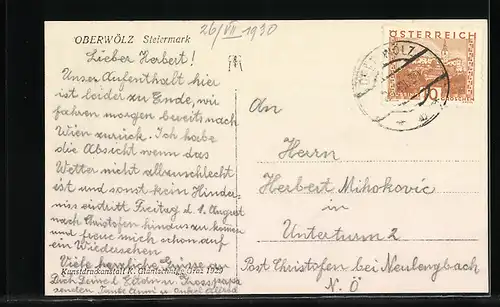 26/VII 1930
OBERWÖLZ Steiermark
Lieber Herbert!
Unser Aufenthalt hier
ist leider zu Ende, wir
fahren morgen bereits nach
Wien zurück. Ich habe
die Absicht wenn das
Wetter nicht allzuschlecht
ist und sonst kein Hinder-
niss eintritt Freitag d. 1. August
nach Christofen hinaus zu kommen
und freue mich schon auf
ein Wiedersehen
Viele herzliche Grüsse an
Kunstdruckanstalt K. Graz 1929
senden Tante u. Onkel
ÖSTERREICH
10 GROSCHEN
An
Herrn
Herbert Mihokovic
in
Unterturm 2
Post Christofen bei Neulengbach
N. Ö